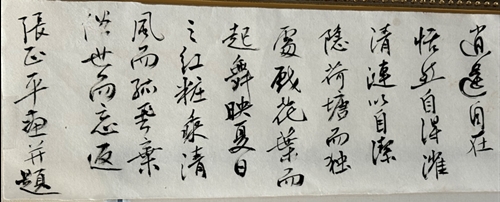 逍遙自在
恬然自得濯
清漣以自潔
隱荷塘而独
處戲花葉而
起舞映夏日
之紅粧乘清
風而孤棄
世而忘返
張正平画并題